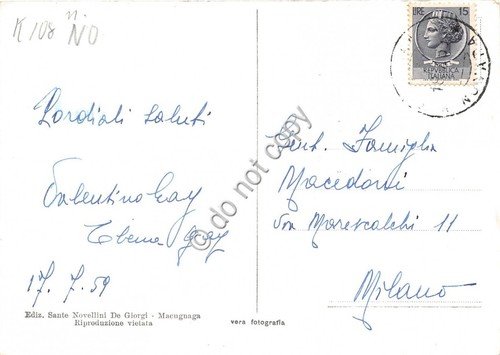 K 108 NO
LIRE 15
REPVBBLICA
ITALIANA
Cordiali saluti
Gent. Famiglia
Macedoni
Via Marescalchi 11
Milano
Valentino Gay
17.7.59
Ediz. Sante Novellini De Giorgi - Macugnaga
Riproduzione vietata
vera fotografia
© do not copy